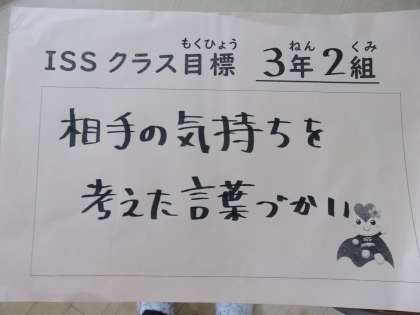 もくひょう ねん くみ
ISS クラス目標 3年2組
相手の気持ちを
考えた言葉づかい